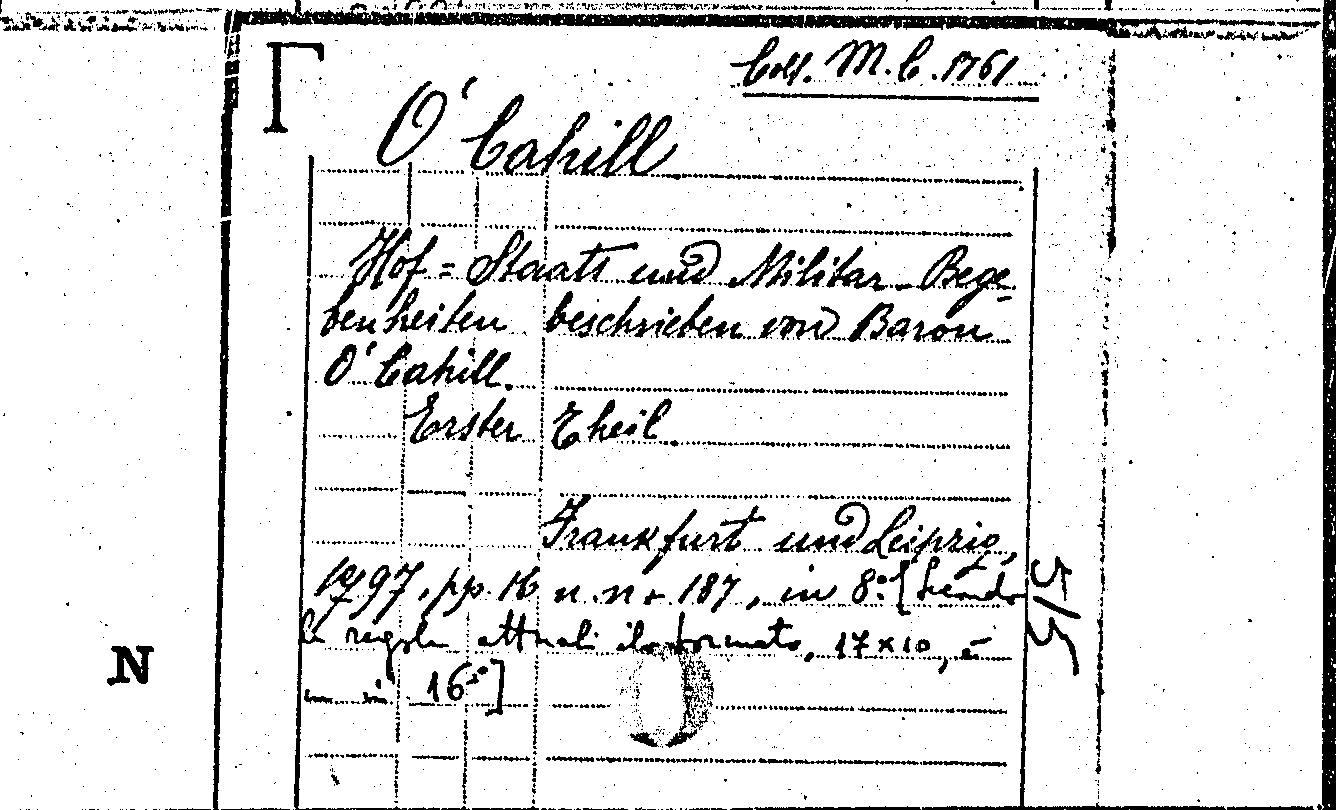 Coll. M.C. 1761
O'Cahill
Hof = Staats und Militar - Bege-
benheiten beschrieben von Baron
O'Cahill.
Erster Theil.
Frankfurt und Leipzig,
1797, pp. 16 n. n. + 187, in 8.° [
regole attuali il formato, 17 x 10, è
in 16°]
N